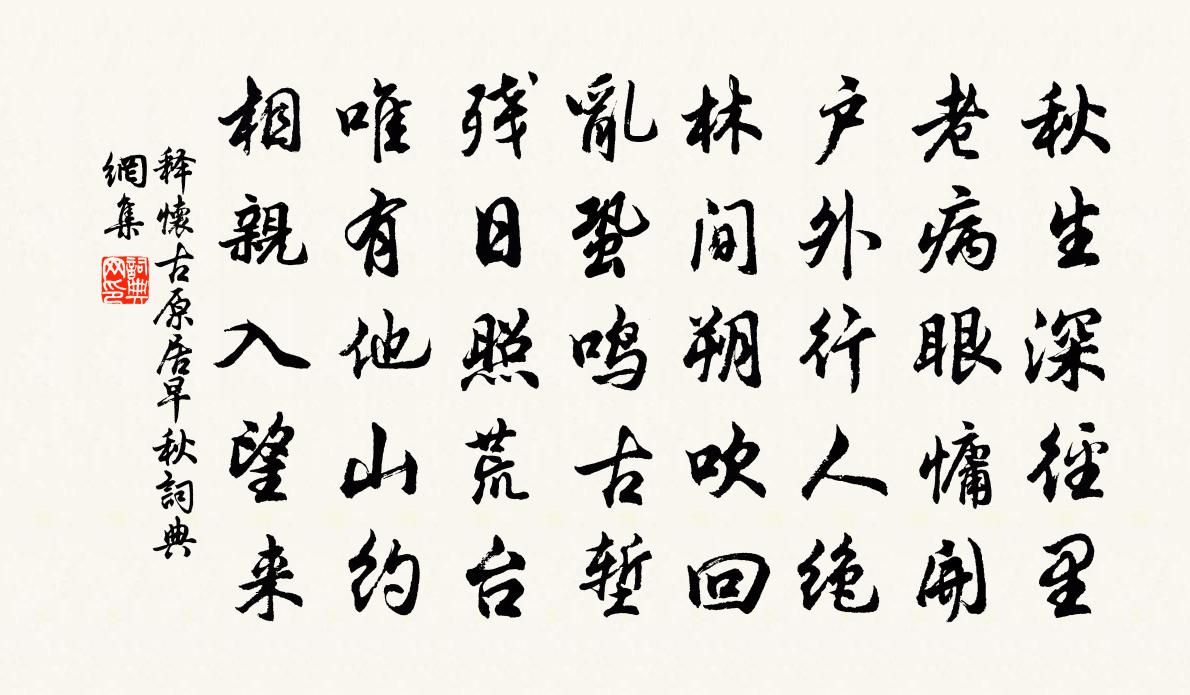 秋生深径里
老病眼慵開
户外行人绝
林間朔吹回
亂蛩鳴古堑
残日照荒台
唯有他山约
相親入望来
释懷古原居早秋詞典
網集
詞典
网印